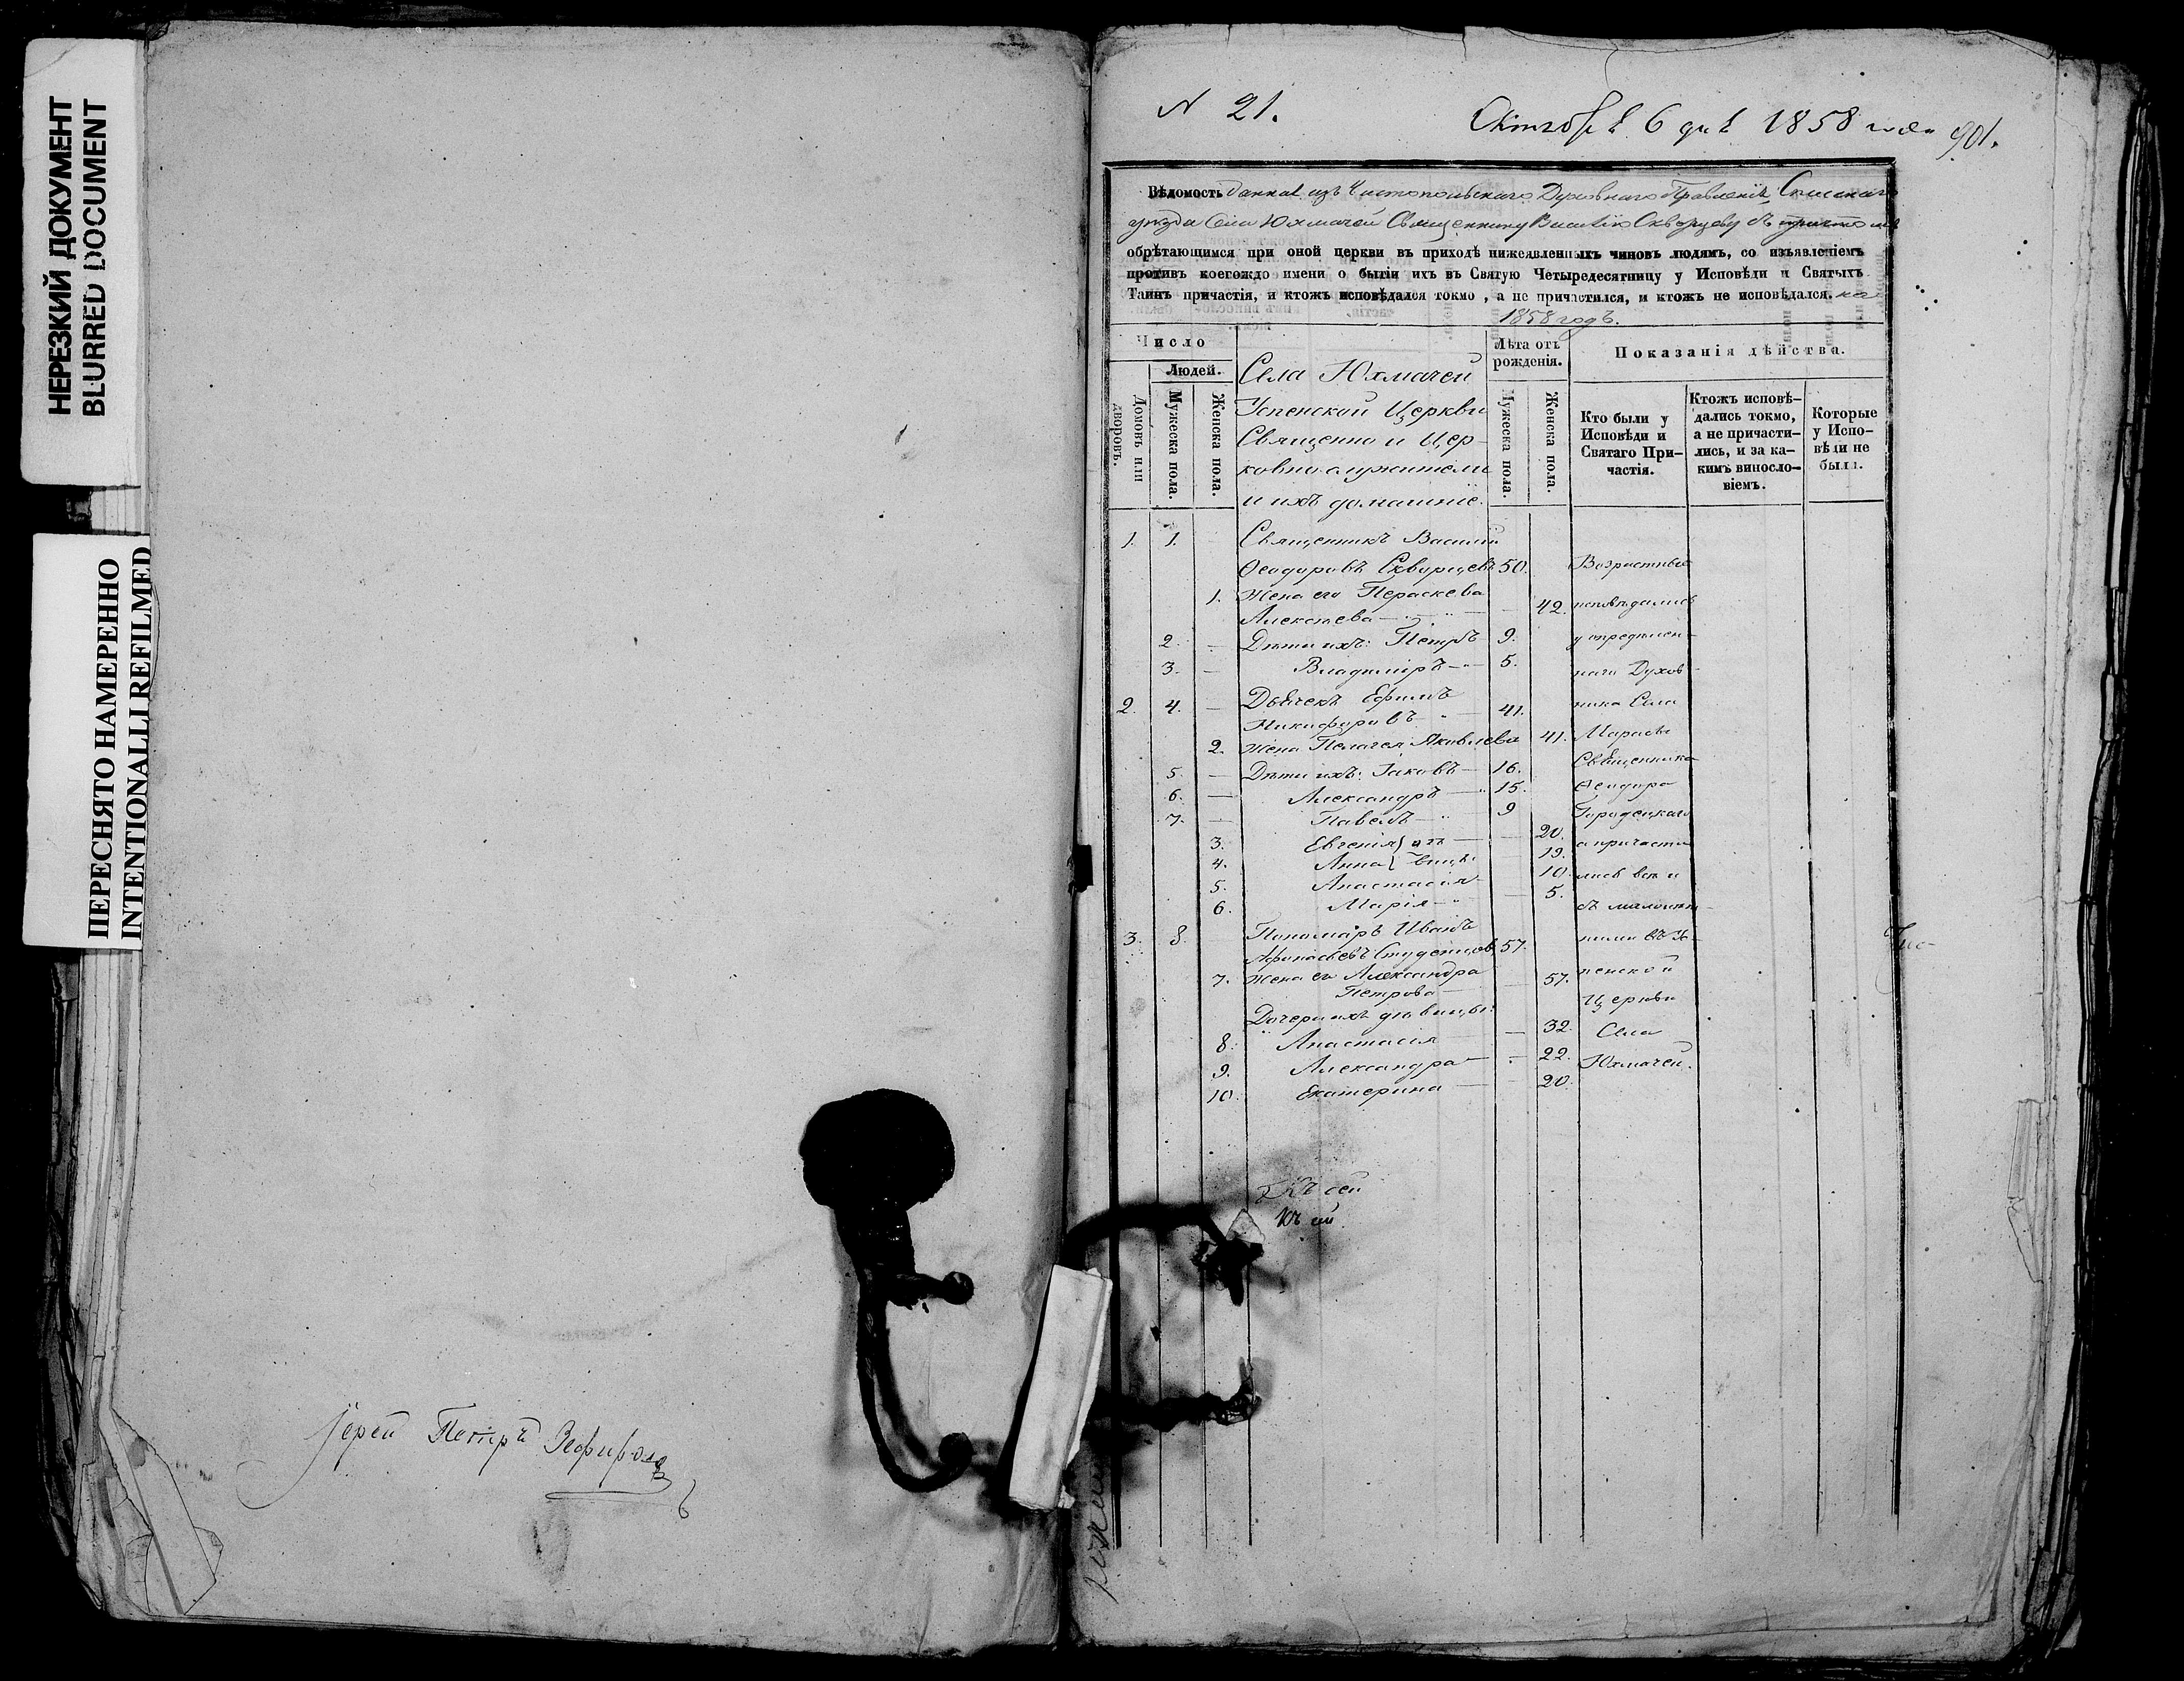 НЕРЕЗКИЙ ДОКУМЕНТ
BLURRED DOCUMENT
ПЕРЕСНЯТО НАМЕРЕННО
INTENTIONALLI REFILMED
Іерей Петръ Зефировъ
N 21.
Октября 6 дня 1858 года
901.
Вѣдомость данная изъ Чистопольскаго Духовнаго Правленія Спасскаго
уѣзда Села Юхмачей Священнику Василію Скворцову съ причтомъ
обрѣтающимся при оной церкви въ приходѣ нижеявленныхъ чиновъ людямъ, со изъявленіемъ
противъ коегождо имени о бытіи ихъ въ Святую Четыредесятницу у Исповѣди и Святыхъ
Таинъ причастія, и ктожъ исповѣдался токмо, а не причастился, и ктожъ не исповѣдался. на
1858 годъ.
Число
Домовъ или дворовъ.
Людей.
Мужеска пола.
Женска пола.
Села Юхмачей
Успенской Церкви
Священно и Цер-
ковнослужители
и ихъ домашніе.
Лѣта отъ рожденія.
Мужеска пола.
Женска пола.
Показанія дѣйства.
Кто были у
Исповѣди и
Святаго При-
частія.
Ктожъ исповѣ-
дались токмо,
а не причасти-
лись, и за ка-
кимъ винослo-
віемъ.
Которые
у Испо-
вѣди не
были.
1. 1. Священникъ Василій
Ѳеодоровъ Скворцовъ 50. Возрастные
1. Жена его Параскева
Алексѣева 42. исповѣдались
2. Дѣти ихъ: Петръ 9. у опредѣлен-
3. Владиміръ 5. наго Духов-
2. 4. Дьячекъ Ефимъ
Никифоровъ 41. ника Села
2. Жена Пелагея Яковлева 41.
Священника
5. Дѣти ихъ: Іаковъ 16.
6. Александръ 15. Ѳеодора
7. Павелъ 9 Городецкаго
3. Евгенія 20. а причасти
4. Анна 19.
5. Анастасія 10. лись всѣ и
6. Марія 5. съ малолѣт-
3. 8. Пономарь Иванъ
Афанасьевъ Студенцовъ 57. ними въ Ус-
7. Жена его Александра 57. пенской
Петрова
Дочери ихъ дѣвицы: Церкви
8. Анастасія 32. Села
9. Александра 22. Юхмачей.
10. Екатерина 20.
Къ сей
Къ сей